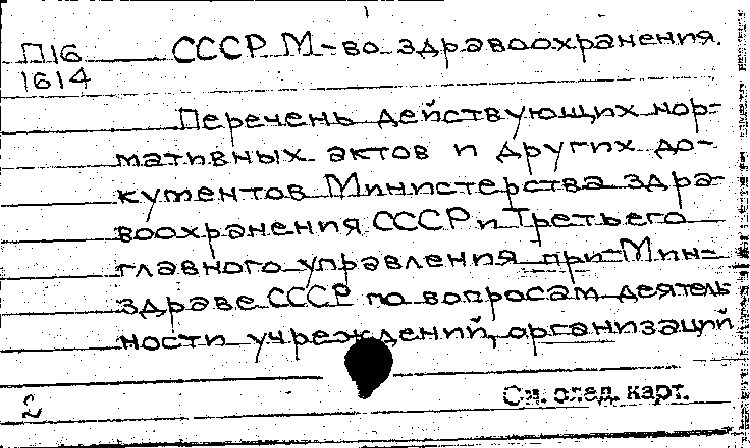 П16 СССР. М-во здравоохранения.
1614
Перечень действующих нор-
мативных актов и других до-
кументов Министерства здра-
воохранения СССР и Третьего
главного управления при Мин-
здраве СССР по вопросам деятель
ности учреждений, организаций
2 См. след. карт.